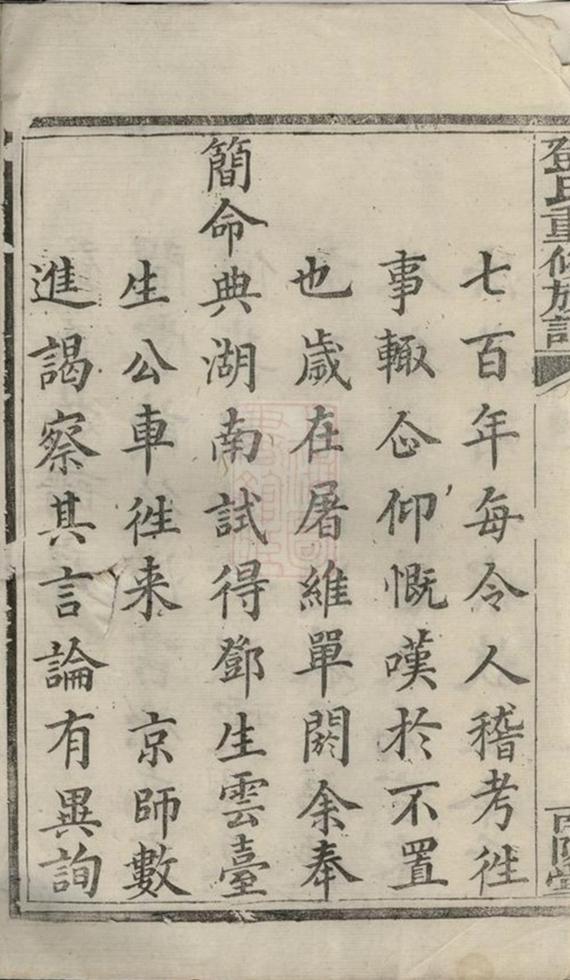 鄧氏重修族譜
七百年每令人稽考徃
事輙企仰慨嘆於不置
也歲在屠維單閼余奉
簡命典湖南試得鄧生雲臺
生公車徃来　京師數
進謁察其言論有異詢